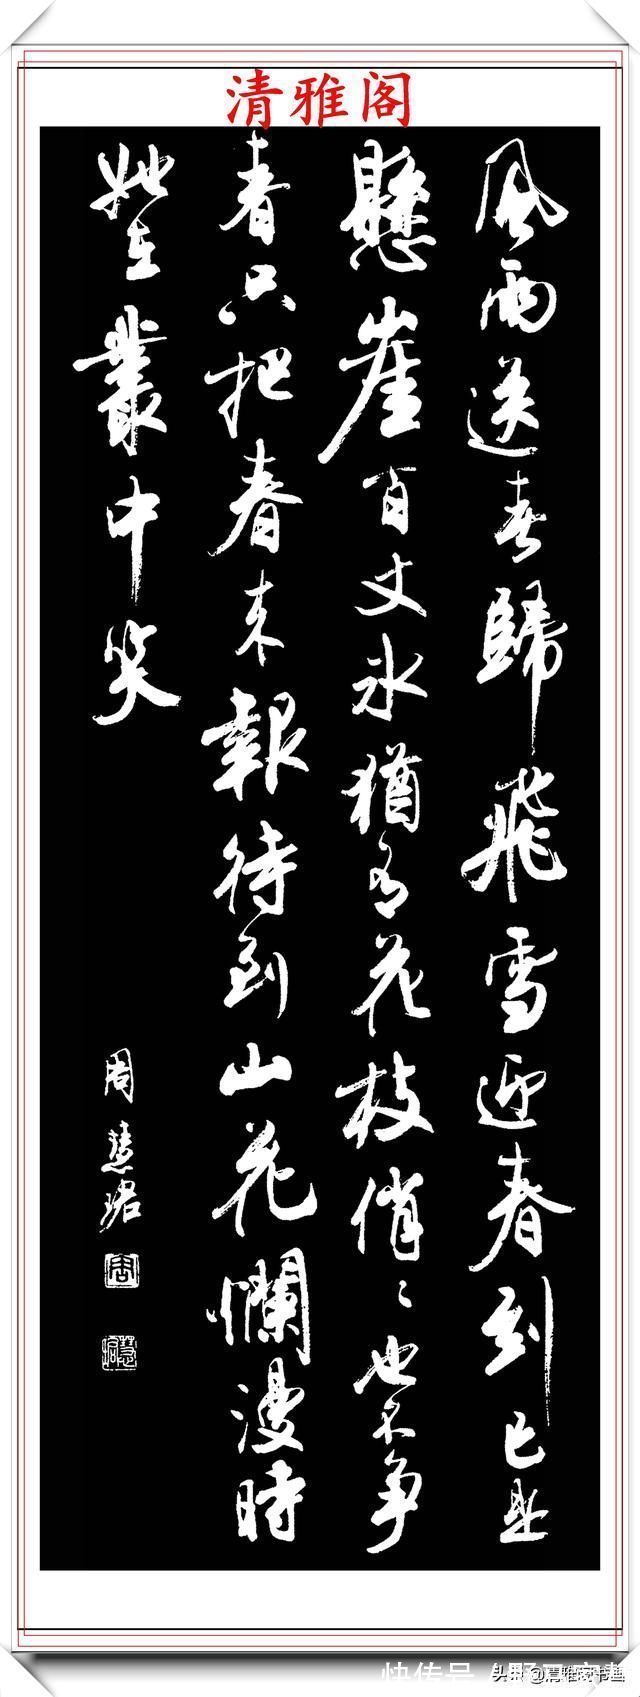 清雅阁
風雨送春歸飛雪迎春到已是
懸崖百丈冰猶有花枝俏〻也不争
春只把春来報待到山花爛漫時
她在叢中笑
周慧珺
快传号
头条 @清雅阁书画